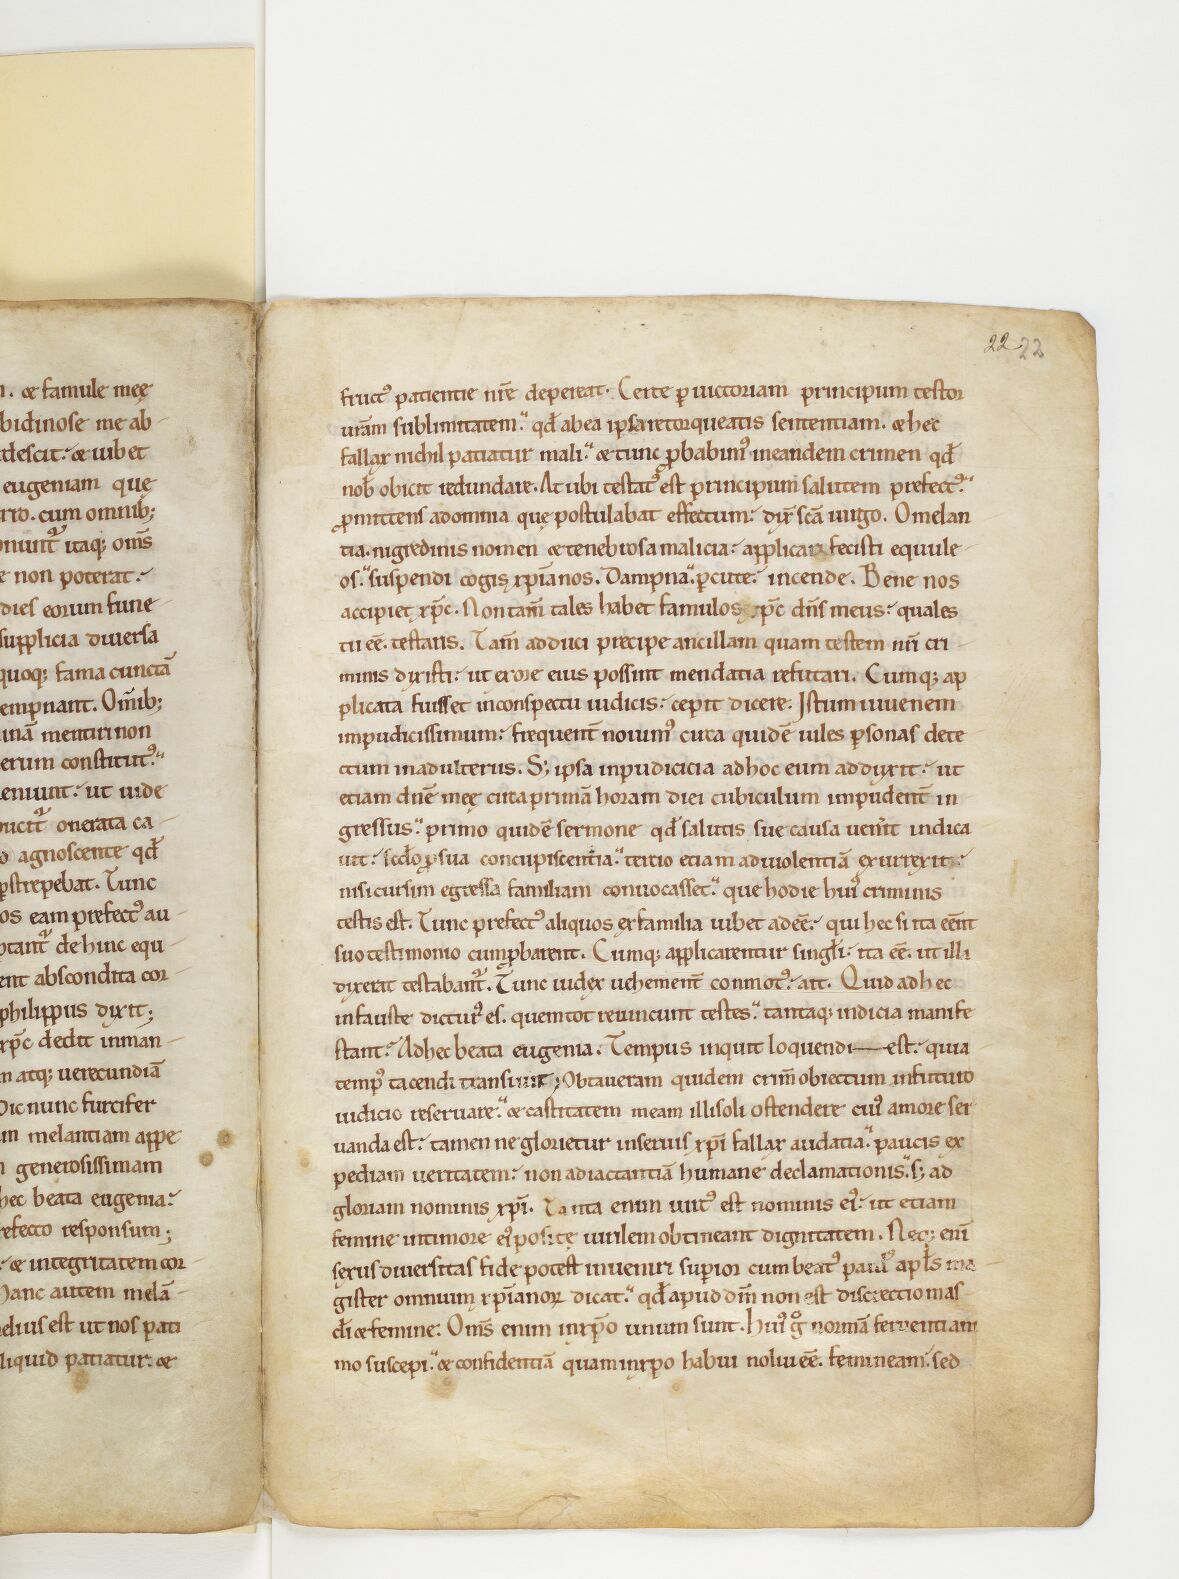 n. & famule meę
bidinose me ab-
descit. & iubet
eugeniam quę
rro. cum omnib;
itaq; om̄s
e non poterat.
dies eorum fune-
supplicia diuersa
quoq; fama cunctā
empnant. Om̄ib;
mentiri non
erum constitut᾿.
eniunt. ut uide
onerata ca-
agnoscente qd̄
pstrepebat. Tunc
os eam prefect᾿ au-
de hinc equ-
ent abscondita cor-
philippus dixit;
xp̄c dedit in man-
m atq; uerecundiā
Dic nunc furcifer
m melantiam appe-
generosissimam
hec beata eugenia.
refecto responsum;
& integritatem cor
hanc autem melā-
elius est ut nos pati
liquid patiatur. &
22 22
fruct᾿ patientie nr̄e depereat. Certe p uictoriam principum testor
ur̄am sublimitatem. qd̄ ab ea ipsa retorqueatis sententiam. & hec
fallax nichil patiatur mali. & tunc pbabim᾿ in eandem crimen qd̄
nob̄ obicit redundare. At ubi testat᾿ est principum salutem prefect᾿.
pmittens a domina quę postulabat effectum. dix̄ sc̄a uirgo. O melan
tia. nigredinis nomen & tenebrosa malicia. applicari fecisti equule-
os. suspendi cogis xp̄ianos. Dampna. pcute. incende. Bene nos
accipiet xp̄c. Non tam̄ tales habet famulos xp̄c dn̄s meus. quales
tu eē. testaris. Tam̄ adduci precipe ancillam quam testem nr̄i cri-
minis dixisti. ut ex ore eius possint mendatia refutari. Cumq; ap
plicata fuisset in conspectu iudicis. cepit dicere. Istum iuuenem
impudicissimum. frequent̄ nouim᾿ circa quidē uiles psonas dete
ctum in adulteriis. S; ipsa inpudicicia ad hoc eum adduxit. ut
etiam dn̄e meę circa primā horam diei cubiculum impudent̄ in
gressus. primo quidē sermone qd̄ salutis sue causa uen̄it indica
uit. scd̄o p sua concupiscentia. tertio etiam ad uiolentiā exurrexit.
nisi cursim egressa familiam conuocasset. que hodie hui᾿ criminis
testis est. Tunc prefect᾿ aliquos ex familia iubet adeē. qui hec si ita eēnt
suo testimonio cumpbarent. Cumq; applicarentur singl̄i. ita eē. ut illa
dixerat testabant᾿. Tunc iudex uehement̄ conmot᾿. ait. Quid ad hec
infauste dictur᾿ es. quem tot reuincunt testes. tantaq; indicia manife
stant. Ad hec beata eugenia. Tempus inquit loquendi—est. quia
temp᾿ tacendi transiuit; Obtaueram quidem crim̄ obiectum in futuro
iudicio reseruare. & castitatem meam illi soli ostendere cui᾿ amore ser
uanda est. tamen ne glorietur in seruis xp̄i fallax audatia. paucis ex
pediam ueritatem. non ad iactantiā humane declamationis. s; ad
gloriam nominis xp̄i. Tanta enim uirt᾿ est nominis ei᾿. ut etiam
femine in timore ei᾿ positę uirilem obtineant dignitatem. Neq; enī
sexus diuersitas fide potest inueniri superior cum beat᾿ paul᾿ apl̄s ma
gister omnium xp̄ianoꝝ dicat. qd̄ apud dm̄ non est discrectio mas-
cl̄i & femine. Om̄s enim in xp̄o unum sunt. Hui᾿ g̊ normā ferventi ani
mo suscepi. & confidentiā quam in xp̄o habui nolui eē. femineam. sed